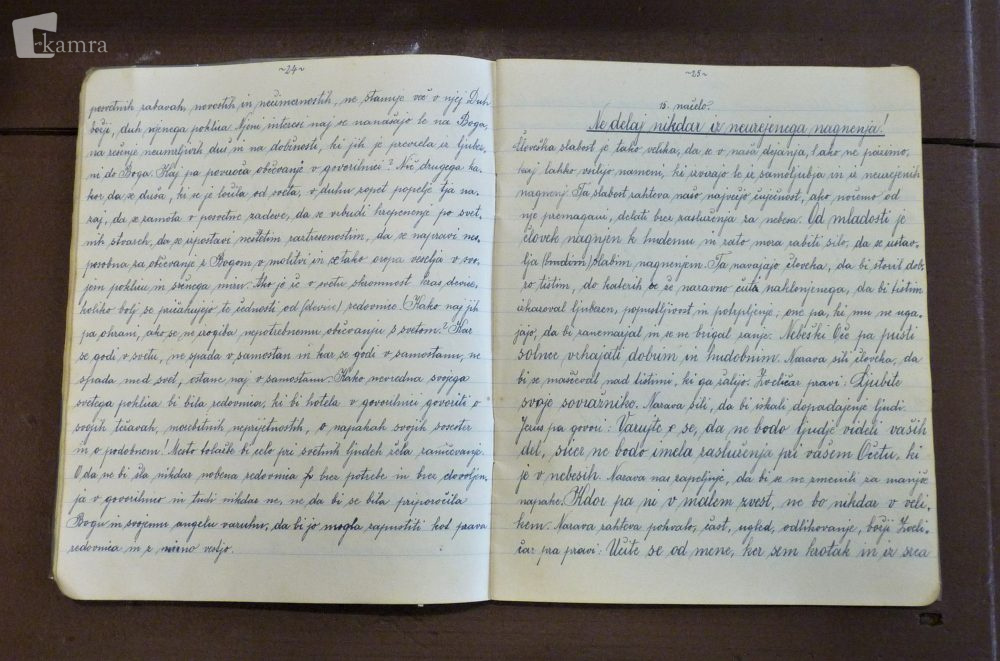 kamra
~24~
posvetnih zabavah, novostih in nečimurnostih, ne stanuje več v njej Duh
božji, duh njenega poklica. Njeni interesi naj se nanašajo le na Boga,
na rešenje neumrljivih duš in na dobičnosti, ki jih je prevzela iz ljubez-
ni do Boga. Kaj pa povzroča občevanje v govorilnici? Nič drugega ka-
kor, da se duša, ki se je ločila od sveta, v duhu zopet popelje tja na-
zaj, da se zamota v posvetne zadeve, da se vzbudi hrepenenje po svet-
nih stvareh, da se izpostavi neštetim raztresenostim, da se napravi nes-
posobna za občevanje z Bogom v molitvi in tako oropa veselja v svo-
jem poklicu in srčnega miru. Ako je že v svetu skromnost kras device,
koliko bolj se pričakuje te čednosti od (device) redovnice! Kako naj jih
pa ohrani, ako se ne izogiba nepotrebnemu občevanju s svetom? Kar
se godi v svetu, ne spada v samostan in kar se godi v samostanu, ne
spada med svet, ostane naj v samostanu. Kako nevredna svojega
svetega poklica bi bila redovnica, ki bi hotela v govorilnici govoriti o
svojih težavah, morebitnih neprijetnostih, o napakah svojih sosester
in o podobnem! Nasto tolažbe bi celo pri svetnih ljudeh žela zaničevanje.
O da ne bi šla nikdar nobena redovnica brez potrebe in brez dovoljen-
ja v govorilnico in tudi nikdar ne, ne da bi se bila priporočila
Bogu in svojemu angelu varuhu, da bi jo mogla zapustiti kot prava
redovnica in z mirno vestjo.
~25~
15. načelo.
Ne delaj nikdar iz neurejenega nagnenja!
Človeška slabost je tako velika, da se v naša dejanja, ako ne pazimo,
kaj lahko vsilijo nameni, ki izvirajo le iz samoljubja in iz neurejenih
nagnenj. Ta slabost zahteva našo največjo čuječnost, ako nočemo od
nje premagani, delati brez zasluženja za nebesa. Od mladosti je
človek nagnjen k hudemu in zato mora rabiti silo, da se ustav-
lja (hudim) slabim nagnenjem. Ta navajajo človeka, da bi storil dob-
ro tistim, do katerih se že naravno čuti naklonjenega, da bi tistim
izkazoval ljubezen, pozornljivost in potrpljenje; one pa, ki mu ne uga-
jajo, da bi zanemarjal in se ne brigal zanje. Nebeški Oče pa pusti
solnce vzhajati dobrim in hudobnim. Narava sili človeka, da
bi se maščeval nad tistimi, ki ga žalijo. Zveličar pravi: Ljubite
svoje sovražnike. Narava sili, da bi iskali dopadajenje ljudi.
Jezus pa govori: Varujte se, da ne bodo ljudje videli vaših
del, sicer ne bodo imela zasluženja pri vašem Očetu, ki
je v nebesih. Narava nas zapeljuje, da bi se ne zmenili za manjše
napake. Kdor pa ni v malem zvest, ne bo nikdar v veli-
kem. Narava zahteva pohvalo, čast, ugled, odlikovanje, božji Zveli-
čar pa pravi: Učite se od mene, ker sem krotak in iz srca